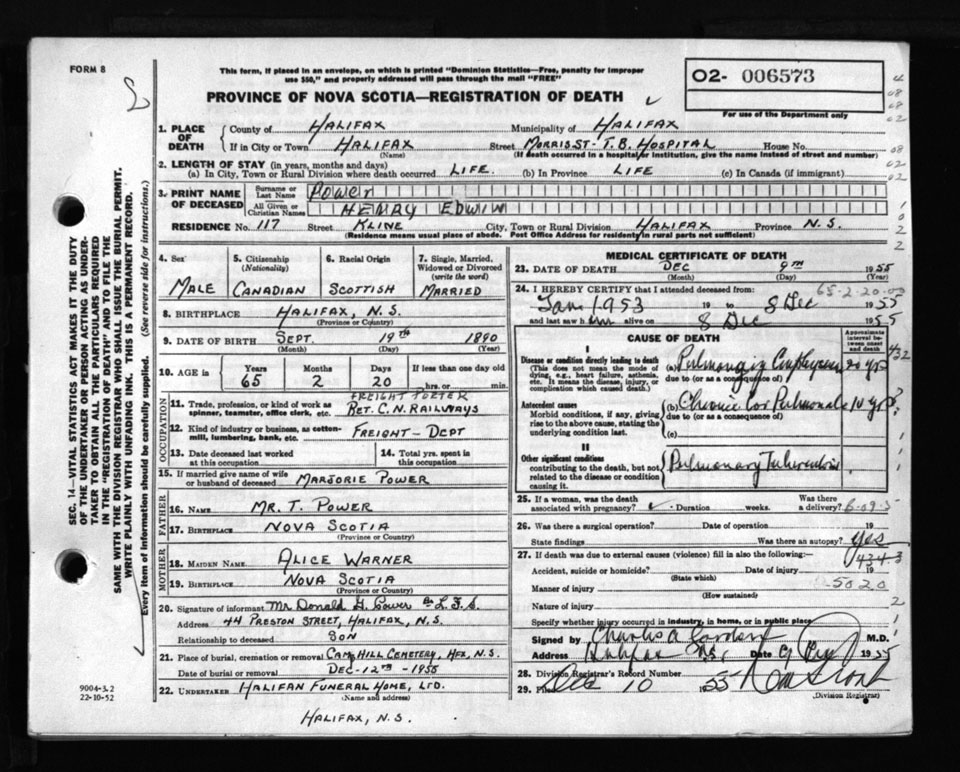 FORM 8
This form, if placed in an envelope, on which is printed "Dominion Statistics—Free, penalty for improper
use $50," and properly addressed will pass through the mail "FREE"
PROVINCE OF NOVA SCOTIA—REGISTRATION OF DEATH
O2- 006573
For use of the Department only
1. PLACE OF DEATH
County of HALIFAX Municipality of HALIFAX
If in City or Town HALIFAX Street MORRIS ST- T.B. HOSPITAL House No.
(Name) (If death occurred in a hospital or institution, give the name instead of street and number)
2. LENGTH OF STAY (in years, months and days)
(a) In City, Town or Rural Division where death occurred LIFE. (b) In Province LIFE (c) In Canada (if immigrant)
3. PRINT NAME OF DECEASED
Surname or Last Name POWER
All Given or Christian Names HENRY EDWIN
RESIDENCE No. 117 Street KLINE City, Town or Rural Division HALIFAX Province N.S.
(Residence means usual place of abode. Post Office Address for residents in rural parts not sufficient)
4. Sex MALE
5. Citizenship (Nationality) CANADIAN
6. Racial Origin SCOTTISH
7. Single, Married, Widowed or Divorced (write the word) MARRIED
8. BIRTHPLACE HALIFAX, N.S.
(Province or Country)
9. DATE OF BIRTH SEPT. 19TH 1890
(Month) (Day) (Year)
10. AGE in Years 65 Months 2 Days 20 If less than one day old hrs. or min.
OCCUPATION
11. Trade, profession, or kind of work as spinner, teamster, office clerk, etc. FREIGHT PORTER
RET. C.N. RAILWAYS
12. Kind of industry or business, as cotton-mill, lumbering, bank, etc. FREIGHT-DEPT
13. Date deceased last worked at this occupation
14. Total yrs. spent in this occupation
15. If married give name of wife or husband of deceased MARJORIE POWER
FATHER
16. NAME MR. T. POWER
17. BIRTHPLACE NOVA SCOTIA
(Province or Country)
MOTHER
18. MAIDEN NAME ALICE WARNER
19. BIRTHPLACE NOVA SCOTIA
(Province or Country)
20. Signature of informant Mr Donald G. Power L.F.S.
Address 44 PRESTON STREET, HALIFAX, N.S.
Relationship to deceased SON
21. Place of burial, cremation or removal CAMP HILL CEMETERY, HFX, N.S.
Date of burial or removal DEC-12TH-1955
22. UNDERTAKER HALIFAX FUNERAL HOME, LTD.
(Name and address)
HALIFAX, N.S.
MEDICAL CERTIFICATE OF DEATH
23. DATE OF DEATH DEC 9TH 1955
(Month) (Day) (Year)
24. I HEREBY CERTIFY that I attended deceased from: 65-2-20-00
Jan 1953 19 to 8 Dec 1955
and last saw him alive on 8 Dec 1955
CAUSE OF DEATH
Approximate interval between onset and death
I
Disease or condition directly leading to death
(This does not mean the mode of dying, e.g., heart failure, asthenia, etc. It means the disease, injury, or complication which caused death.)
(a) Emphysema 20 yrs
due to (or as a consequence of)
Antecedent causes
Morbid conditions, if any, giving rise to the above cause, stating the underlying condition last.
(b) Chronic Cor Pulmonale 10 yrs?
due to (or as a consequence of)
(c)
II
Other significant conditions contributing to the death, but not related to the disease or condition causing it.
Pulmonary Tuberculosis
25. If a woman, was the death associated with pregnancy? Duration weeks. Was there a delivery?
26. Was there a surgical operation? Date of operation 19
State findings Was there an autopsy? yes
27. If death was due to external causes (violence) fill in also the following:— 434-3
Accident, suicide or homicide? Date of injury 19
(State which)
Manner of injury 5020
(How sustained)
Nature of injury
Specify whether injury occurred in industry, in home, or in public place
Signed by Charles A M.D.
Address Halifax N.S. Date 9 Dec 1955
28. Division Registrar's Record Number
29. Dec 10 1955
(Division Registrar)
SEC. 14—VITAL STATISTICS ACT MAKES IT THE DUTY
OF THE UNDERTAKER OR PERSON ACTING AS UNDER-
TAKER TO OBTAIN ALL THE PARTICULARS REQUIRED
IN THE "REGISTRATION OF DEATH" AND TO FILE THE
SAME WITH THE DIVISION REGISTRAR WHO SHALL ISSUE THE BURIAL PERMIT.
WRITE PLAINLY WITH UNFADING INK. THIS IS A PERMANENT RECORD.
Every item of information should be carefully supplied. (See reverse side for instructions.)
9004-3.2
22-10-52